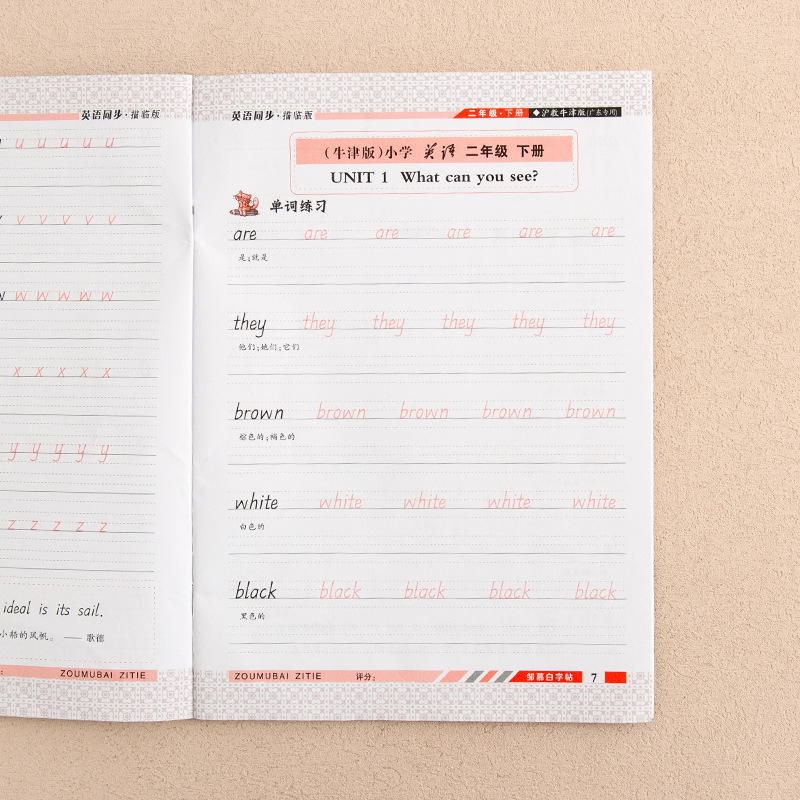 英语同步·描临版
u u u u u
v v v v v
w w w w w w
x x x x x
y y y y y
z z z z z
ideal is its sail.
小船的风帆。 —— 歌德
ZOUMUBAI ZITIE
英语同步·描临版 二年级·下册 ◆沪教牛津版(广东专用)
(牛津版)小学 英语 二年级 下册
UNIT 1 What can you see?
单词练习
are are are are are are
是;就是
they they they they they they
他们;她们;它们
brown brown brown brown brown
棕色的;褐色的
white white white white white
白色的
black black black black black
黑色的
ZOUMUBAI ZITIE 评分: 邹慕白字帖 7